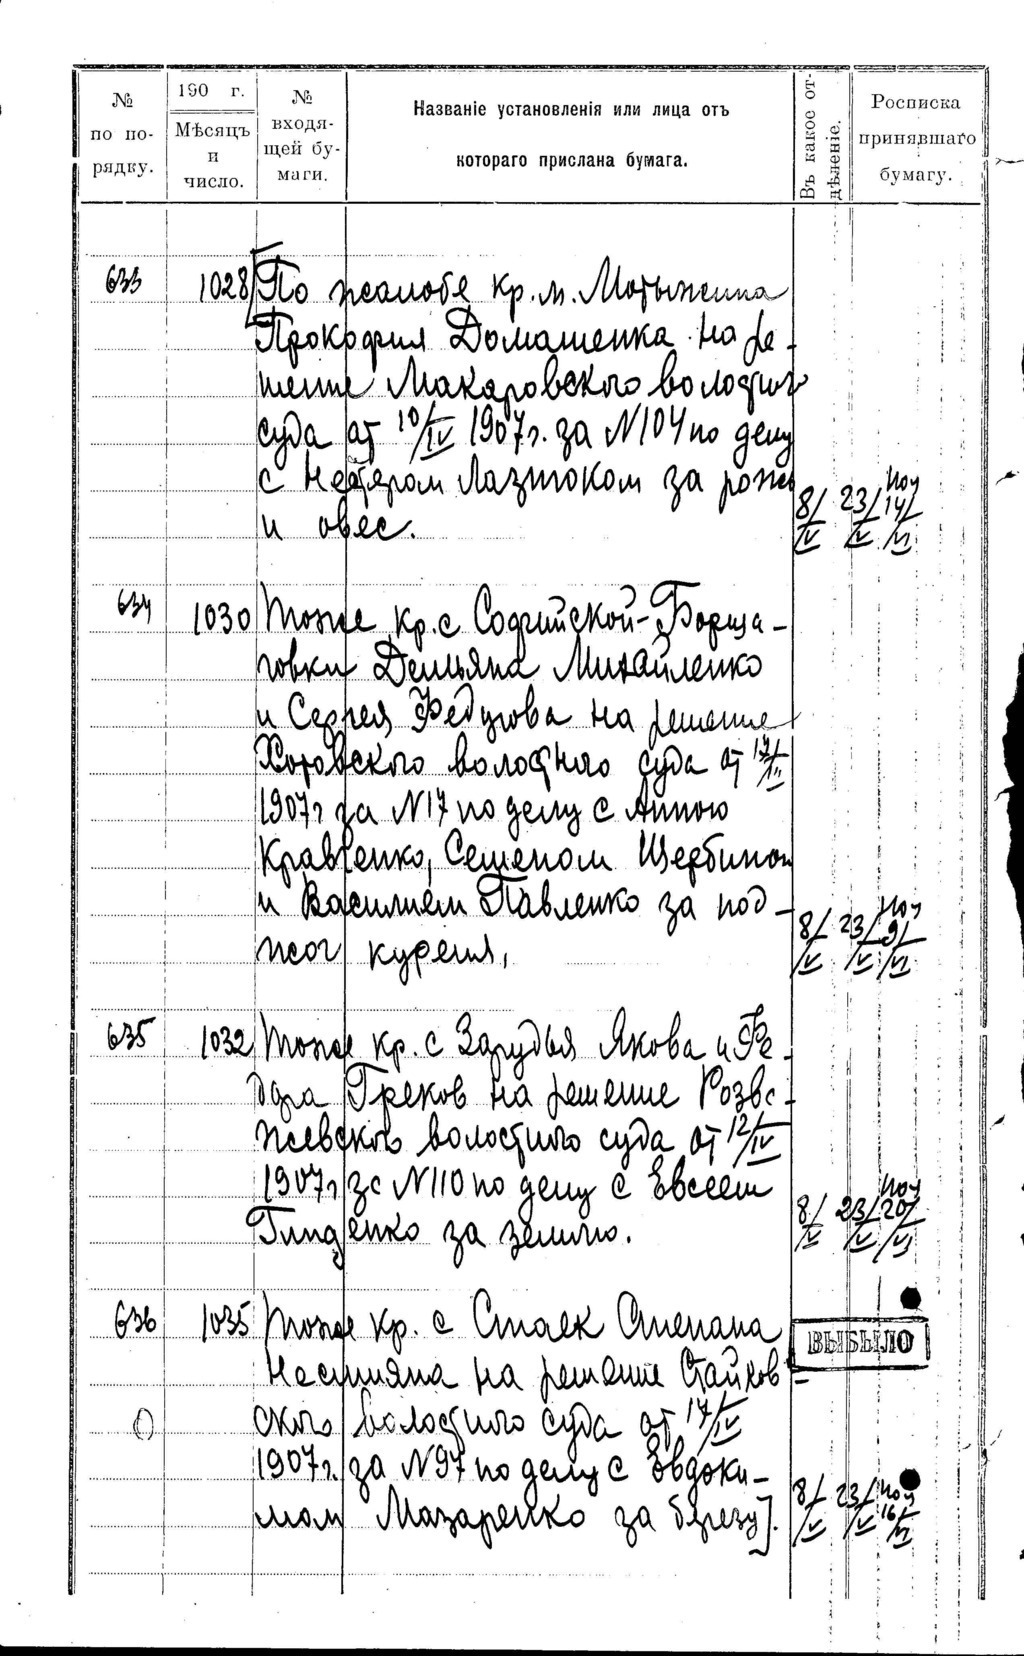 № по порядку.
190 г.
Мѣсяцъ и число.
№ входящей бумаги.
Названіе установленія или лица отъ котораго прислана бумага.
Въ какое отдѣленіе.
Росписка принявшаго бумагу.
633 1028 По жалобе кр. м. Мотыжина
Прокофия Домашенка на ре-
шение Макаровского волостного
суда от 10/IV 1907г. за N104 по делу
с Нестером Лазтоком за рожь
и овес. 8/V 23/V 14/VI
634 1030 Тоже кр. с Софийской-Борща-
говки Демьяна Михайленко
и Сергея Федузова на решение
Хотовского волостного суда от
1907г за N17 по делу с Анною
Кравченко, Семеном Щербиною
и Василием Павленко за под-
жог куреня, 8/V 23/V 9/VI
635 1032 Тоже кр. с Зарудья Якова и Фе-
дора Греков на решение Розва-
жевского волостного суда от 12/IV
1907г за N110 по делу с Евсеем
Гриценко за землю. 8/V 23/V 20/VI
636 1035 Тоже кр. с Стаек Степана
ВЫБЫЛО
Несмияна на решение Стайков-
ского волостного суда от 17/IV
1907г. за N97 по делу с Евдоки-
мом Мазаренко за березу]. 8/V 23/V 16/VI